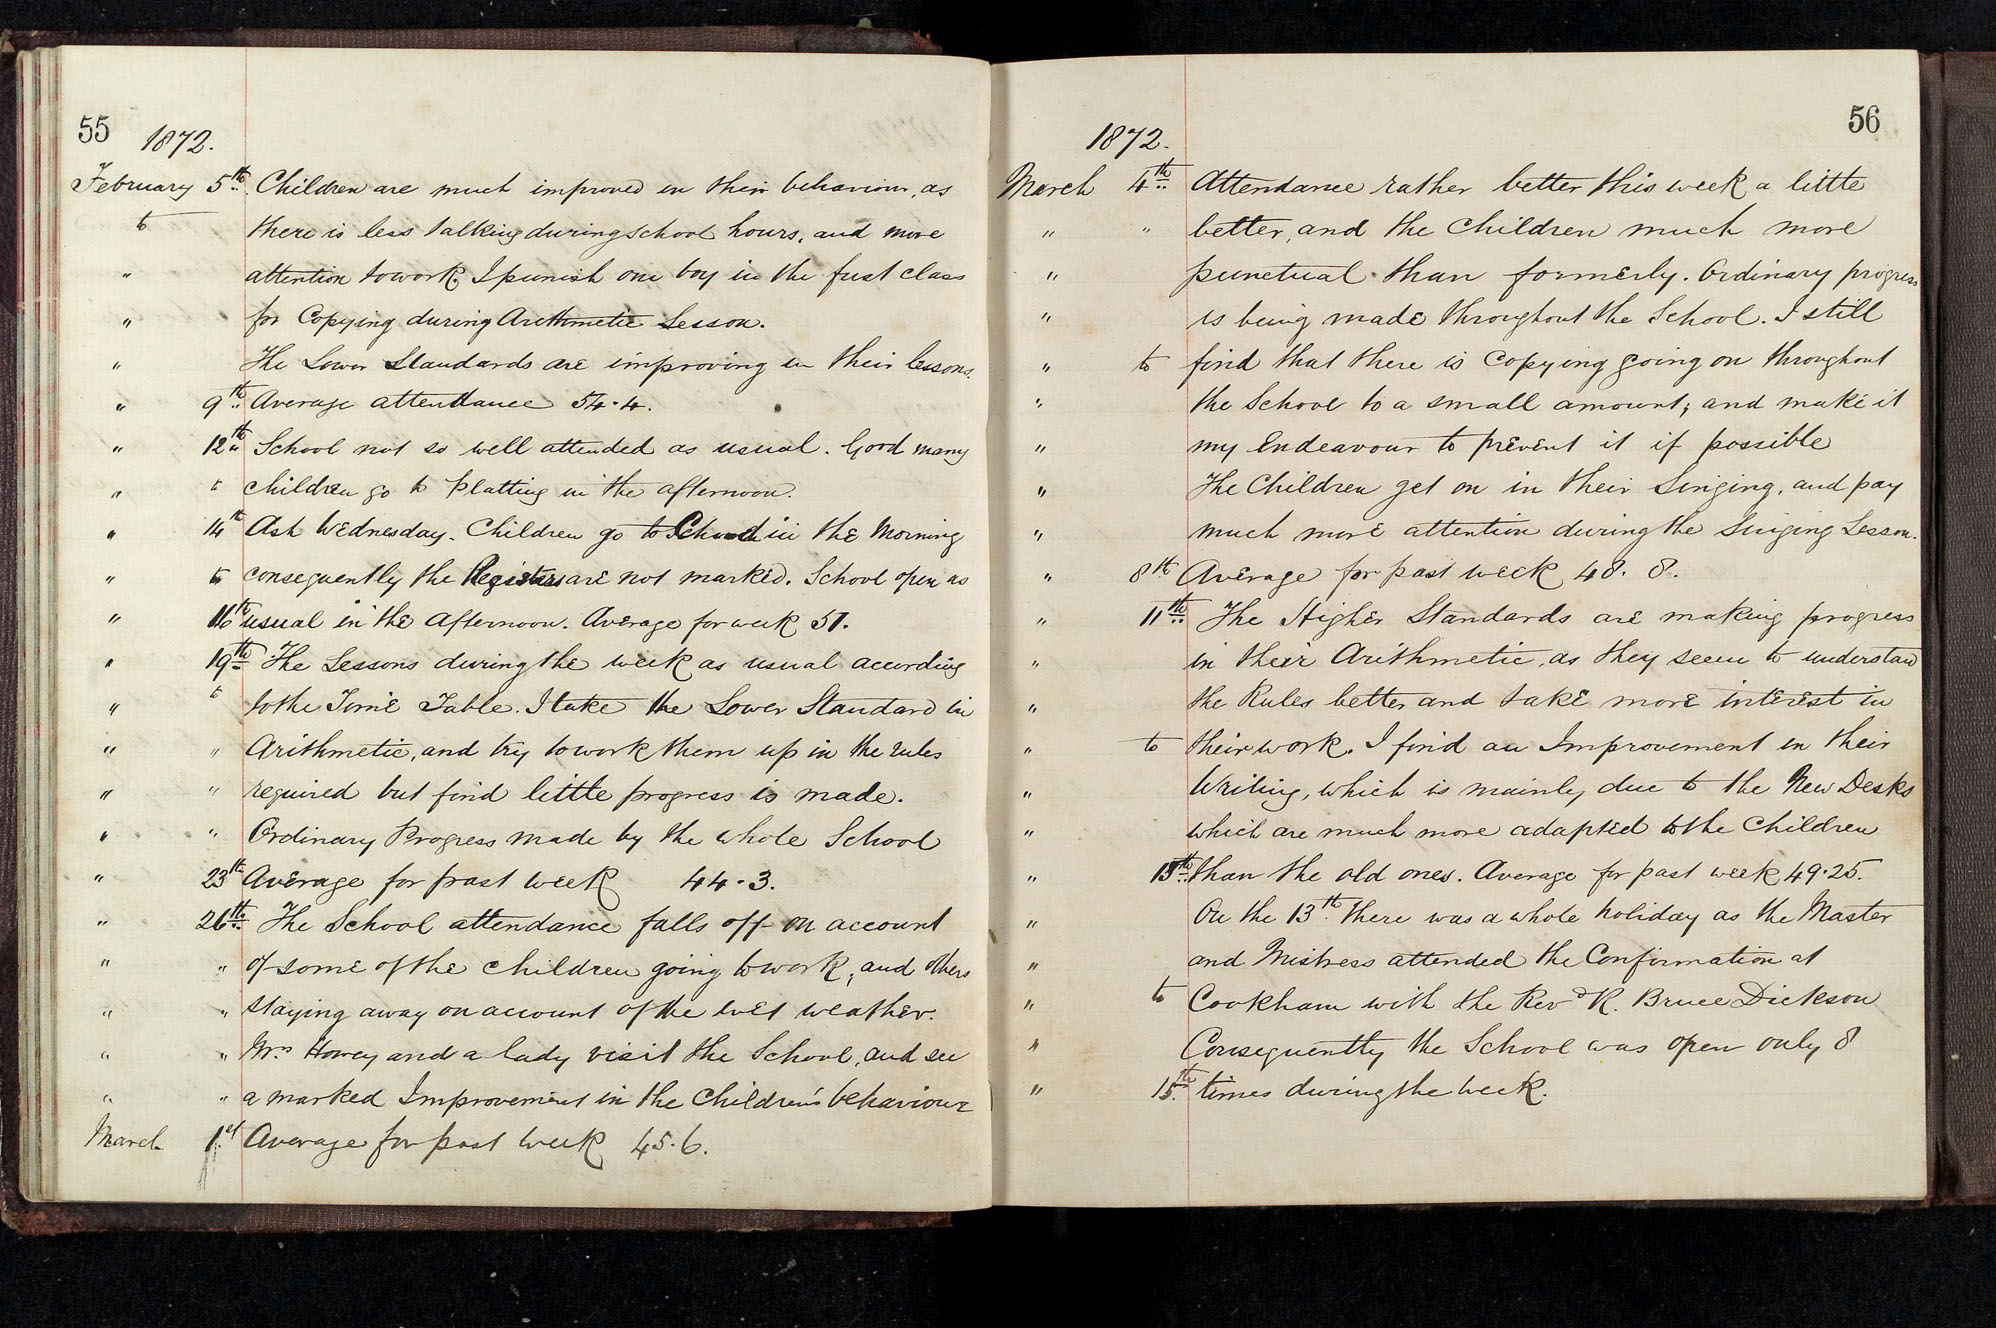 55
1872.
February 5th. Children are much improved in their behaviour, as
to there is less talking during school hours, and more
" attention to work. I punish one boy in the first class
" for Copying during Arithmetic Lesson.
" The Lower Standards are improving in their lessons.
" 9th Average attendance 54.4.
" 12th School not so well attended as usual. Good many
" to children go to Platting in the afternoon.
" 14th Ash Wednesday. Children go to Church in the Morning
" to consequently the Registers are not marked. School open as
" 16th usual in the Afternoon. Average for week 51.
" 19th The Lessons during the week as usual according
" to to the Time Table. I take the Lower Standard in
" " Arithmetic, and try to work them up in the rules
" " required but find little progress is made.
" " Ordinary Progress made by the whole School
" 23rd Average for past week 44.3.
" 26th The School attendance falls off on account
" " of some of the children going to work, and others
" " staying away on account of the wet weather.
" " Mrs Howey and a lady visit the School, and see
" " a marked Improvement in the Children's behaviour
March 1st Average for past week 45.6.
56
1872.
March 4th Attendance rather better this week a little
" " better, and the children much more
" punctual than formerly. Ordinary progress
" is being made throughout the School. I still
" to find that there is Copying going on throughout
" the School to a small amount; and make it
" my Endeavour to prevent it if possible
" The Children get on in their Singing, and pay
" much more attention during the Singing Lesson.
" 8th Average for past week 48.8.
" 11th The Higher Standards are making progress
" in their Arithmetic, as they seem to understand
" the Rules better and take more interest in
" to their work. I find an Improvement in their
" Writing, which is mainly due to the New Desks
" which are much more adapted to the Children
" 15th than the old ones. Average for past week 49.25.
" On the 13th there was a whole holiday as the Master
" and Mistress attended the Confirmation at
" to Cookham with the Revd R. Bruce Dickson
" Consequently the School was open only 8
" 15th times during the week.